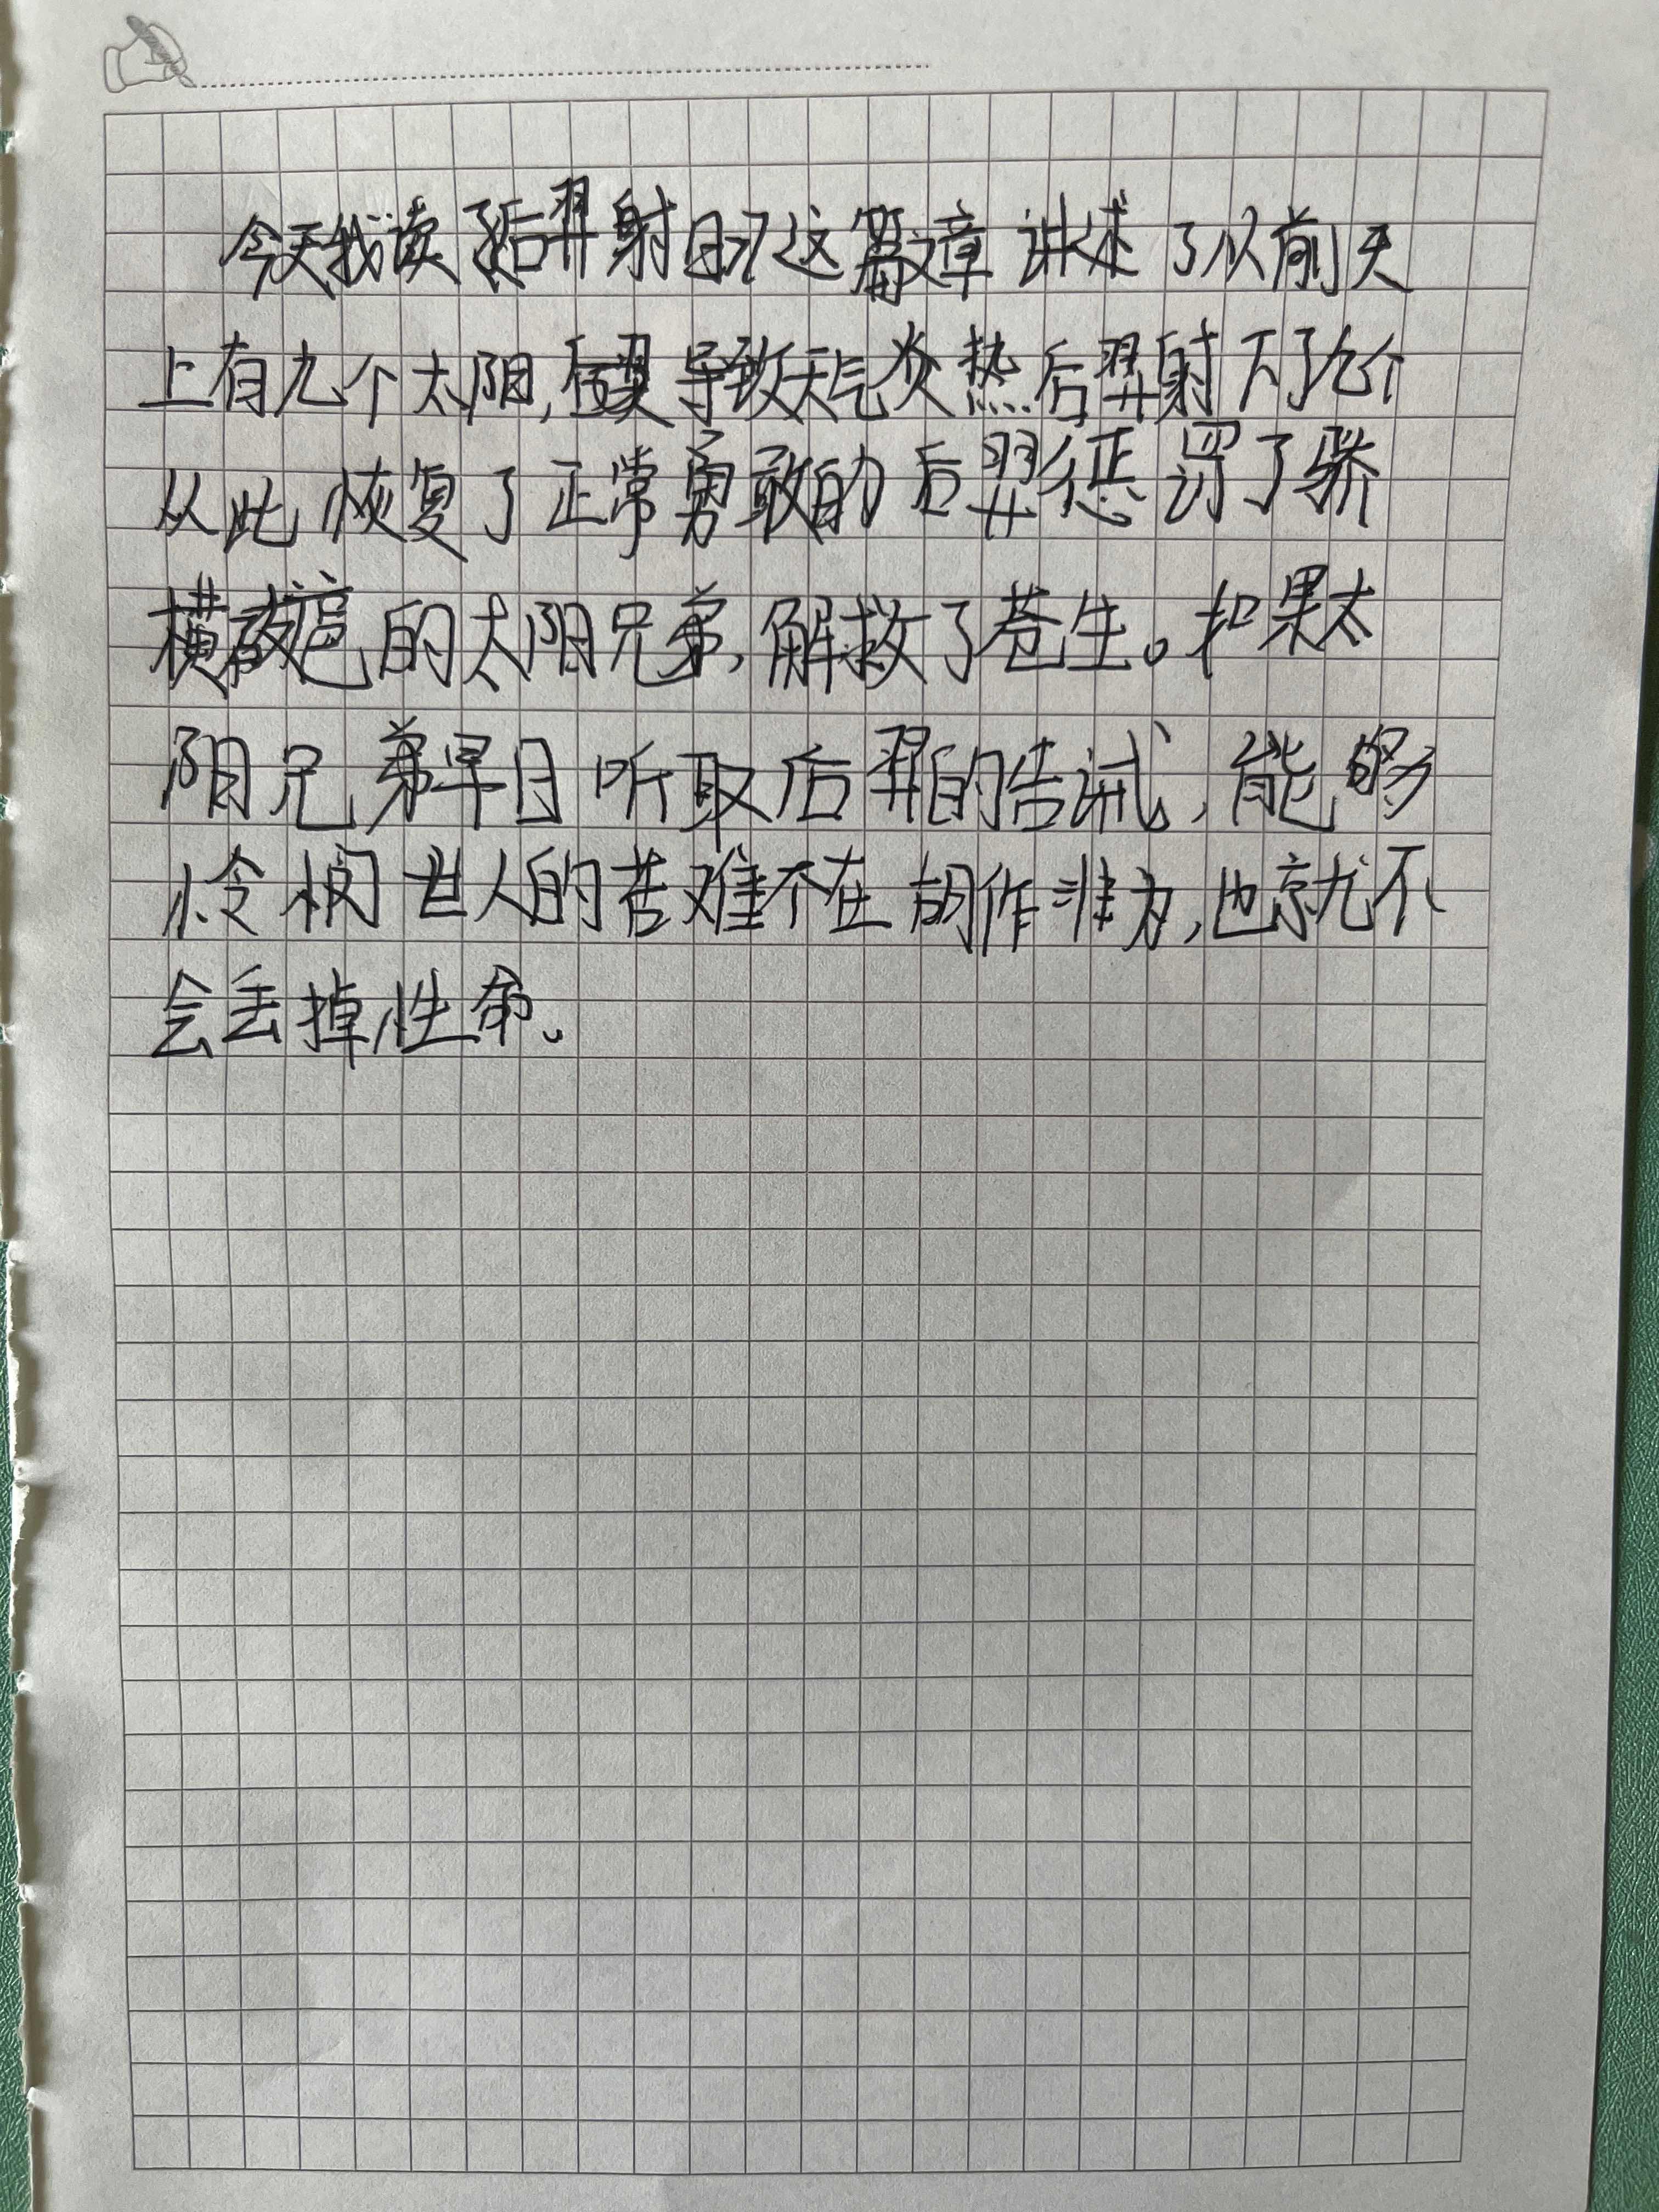 今天我读了《后羿射日》这篇文章讲述了从前天
上有九个太阳,导致天气炎热后羿射下了九个
从此恢复了正常勇敢的后羿惩罚了骄
横的太阳兄弟,解救了苍生。如果太
阳兄弟早日听取后羿的告诫,能够
怜悯世人的苦难不在胡作非为,也就不
会丢掉性命。